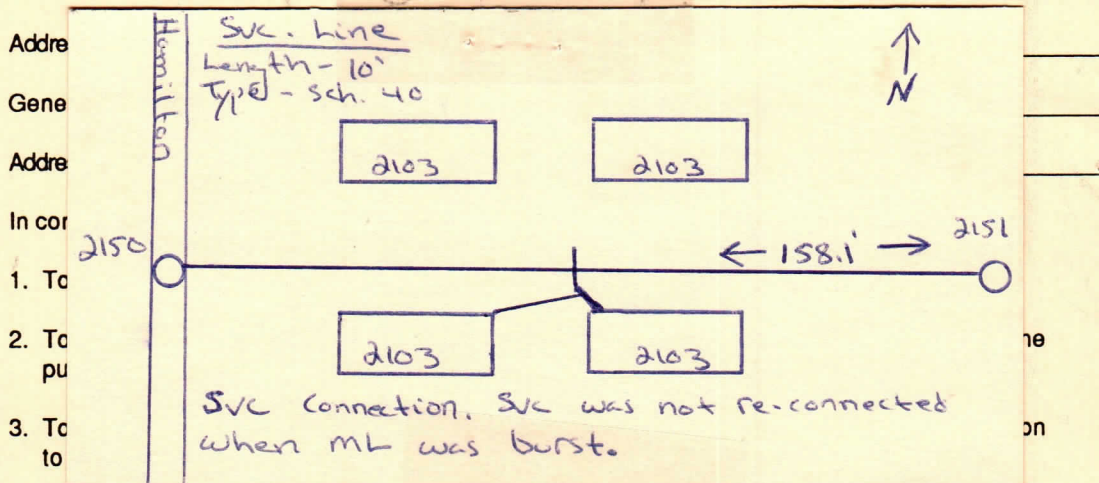 Addre
Gene
Addre
In cor
1. To
2. To
pu
3. To
to
ne
on
Hamilton
Svc. Line
Length - 10'
Type - Sch. 40
N
2103 2103
2150 ← 158.1' → 2151
2103 2103
Svc Connection. Svc was not re-connected
when mL was burst.